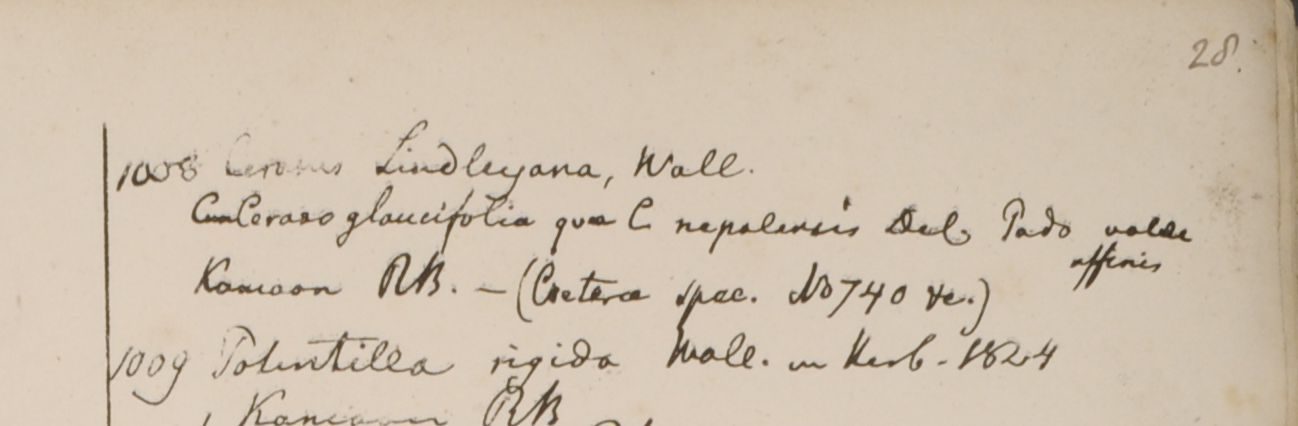 28.
1008 Cerasus Lindleyana, Wall.
Cum Ceraso glaucifolia quæ C nepalensis Del. Pado valde
affinis
Kamaon RB. – (Cæteræ spec. No 740 &c.)
1009 Potentilla rigida Wall. in Herb. 1824
Kamaon RB